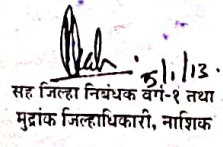 5/1/13.
सह जिल्हा निबंधक वर्ग-१ तथा
मुद्रांक जिल्हाधिकारी, नाशिक